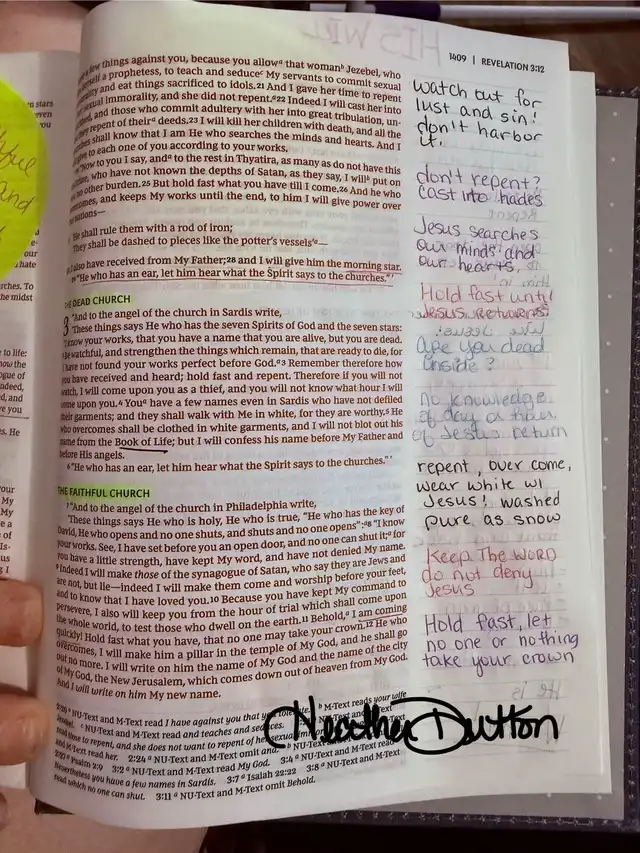 HIS WILL
1409 | REVELATION 3:12
few things against you, because you allowᵃ that womanᵇ Jezebel, who
a prophetess, to teach and seduceᶜ My servants to commit sexual
and eat things sacrificed to idols.21 And I gave her time to repent
sexual immorality, and she did not repent.ᵃ22 Indeed I will cast her into
and those who commit adultery with her into great tribulation, un-
they repent of theirᵃ deeds.23 I will kill her children with death, and all the
shall know that I am He who searches the minds and hearts. And I
give to each one of you according to your works.
"Now to you I say, andᵃ to the rest in Thyatira, as many as do not have this
who have not known the depths of Satan, as they say, I willᵇ put on
no other burden.25 But hold fast what you have till I come.26 And he who
and keeps My works until the end, to him I will give power over
nations—
He shall rule them with a rod of iron;
They shall be dashed to pieces like the potter's vessels'ᵃ—
also have received from My Father;28 and I will give him the morning star.
"He who has an ear, let him hear what the Spirit says to the churches."'
THE DEAD CHURCH
3 "And to the angel of the church in Sardis write,
'These things says He who has the seven Spirits of God and the seven stars:
know your works, that you have a name that you are alive, but you are dead.
Be watchful, and strengthen the things which remain, that are ready to die, for
I have not found your works perfect before God.ᵃ3 Remember therefore how
you have received and heard; hold fast and repent. Therefore if you will not
watch, I will come upon you as a thief, and you will not know what hour I will
come upon you.4 Youᵃ have a few names even in Sardis who have not defiled
their garments; and they shall walk with Me in white, for they are worthy.5 He
who overcomes shall be clothed in white garments, and I will not blot out his
name from the Book of Life; but I will confess his name before My Father and
before His angels.
6 "He who has an ear, let him hear what the Spirit says to the churches."'
THE FAITHFUL CHURCH
7 "And to the angel of the church in Philadelphia write,
'These things says He who is holy, He who is true, "He who has the key of
David, He who opens and no one shuts, and shuts and no one opens":ᵃ8 "I know
your works. See, I have set before you an open door, and no one can shut it;ᵃ for
you have a little strength, have kept My word, and have not denied My name.
9 Indeed I will make those of the synagogue of Satan, who say they are Jews and
are not, but lie—indeed I will make them come and worship before your feet,
and to know that I have loved you.10 Because you have kept My command to
persevere, I also will keep you from the hour of trial which shall come upon
the whole world, to test those who dwell on the earth.11 Behold,ᵃ I am coming
quickly! Hold fast what you have, that no one may take your crown.12 He who
overcomes, I will make him a pillar in the temple of My God, and he shall go
out no more. I will write on him the name of My God and the name of the city
of My God, the New Jerusalem, which comes down out of heaven from My God.
And I will write on him My new name.
2:20 ᵃ NU-Text and M-Text read I have against you that you tolerate. ᵇ M-Text reads your wife
Jezebel. ᶜ NU-Text and M-Text read and teaches and seduces.
time to repent, and she does not want to repent of her sexual
and M-Text read her. 2:24 ᵃ NU-Text and M-Text omit and. ᵇ NU-Text and M-Text
2:27 ᵃ Psalm 2:9 3:2 ᵃ NU-Text and M-Text read My God. 3:4 ᵃ NU-Text and M-Text read
Nevertheless you have a few names in Sardis. 3:7 ᵃ Isaiah 22:22 3:8 ᵃ NU-Text and M-Text
read which no one can shut. 3:11 ᵃ NU-Text and M-Text omit Behold.
watch out for
lust and sin!
don't harbor
it.
don't repent?
cast into hades
Jesus searches
our minds and
our hearts.
Hold fast until
Jesus returns!
are you dead
inside?
no knowledge
of day or hour
of Jesus return
repent, over come,
wear white w/
Jesus! washed
pure as snow
Keep The WORD
do not deny
Jesus
Hold fast, let
no one or nothing
take your crown
Heather Dutton